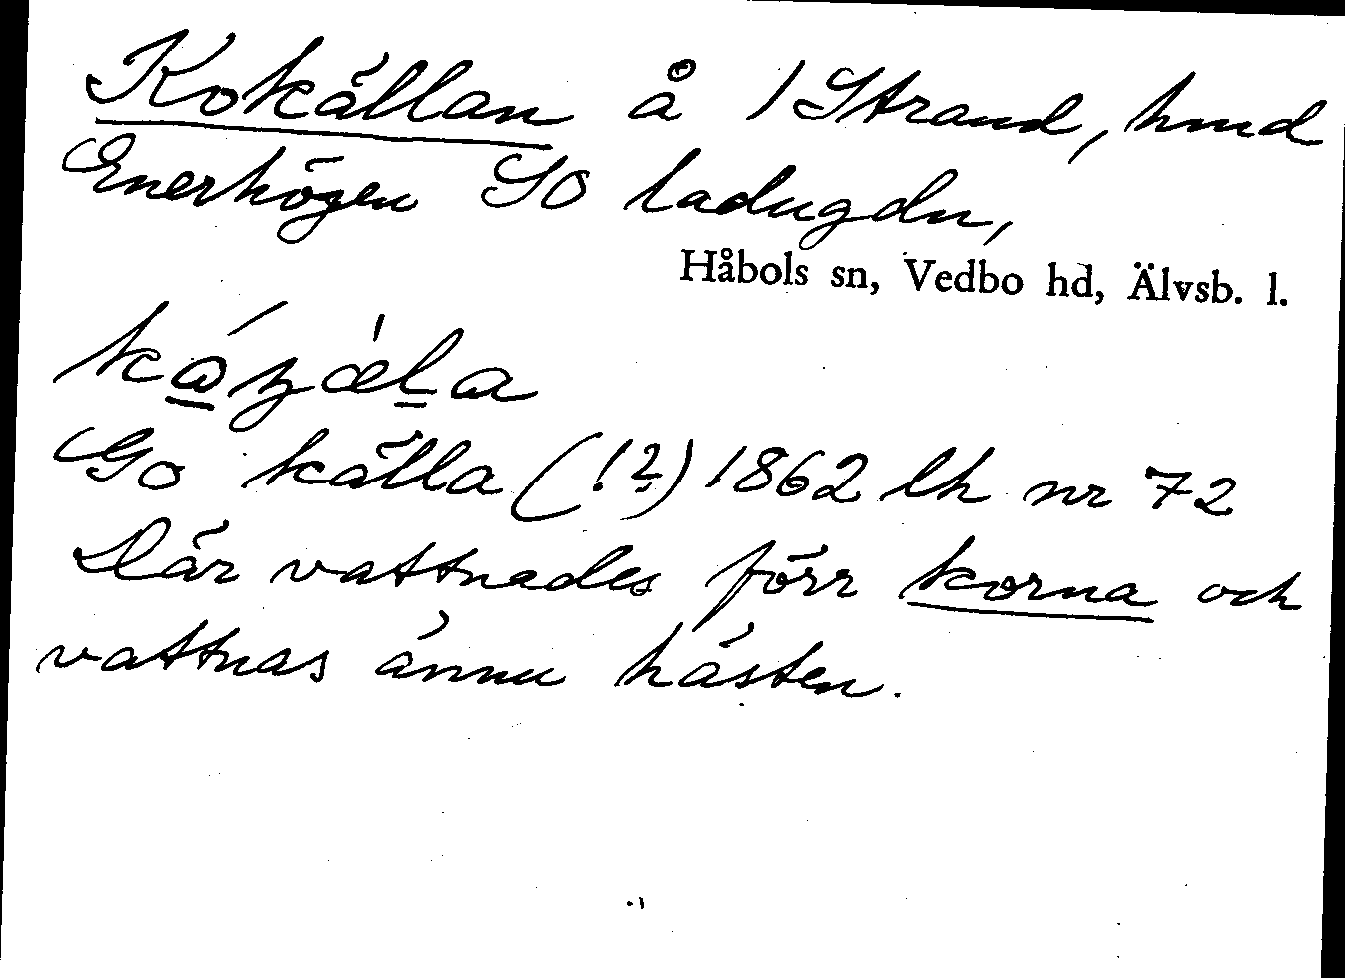 Kokällan å 1 Strand, hmd
Enerhögen SO ladugdn,
Håbols sn, Vedbo hd, Älvsb. l.
Go källa (!?) 1862 lh nr 72
Där vattnades förr korna och
vattnas ännu hästen.